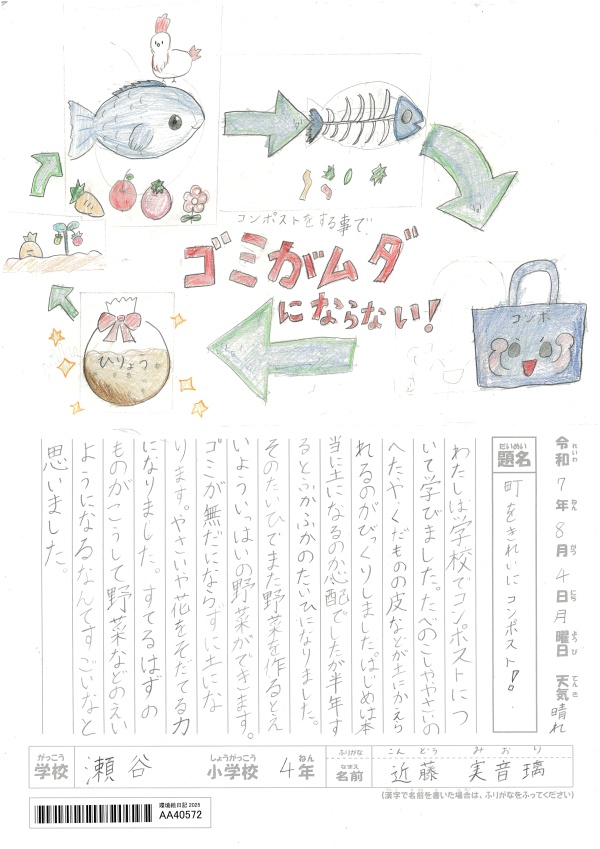 コンポストをする事で、
ゴミがムダ
にならない!
コンポ
ひりょう
令和7年8月4日月曜日 天気 晴れ
れいわ ねん がつ にち ようび てんき
だいめい
題名
町をきれいにコンポスト!。
わたしは学校でコンポストにつ
いて学びました。たべのこしややさいの
へたや、くだものの皮などが土にかえら
れるのがびっくりしました。はじめは本
当に土になるのか心配でしたが半年す
るとふかふかのたいひになりました。
そのたいひでまた野菜を作るとえ
いよういっぱいの野菜ができます。
ゴミが無だにならずに土にな
ります。やさいや花をそだてる力
になりました。すてるはずの
ものがこうして野菜などのえい
ようになるなんてすごいなと
思いました。
がっこう
学校 瀬谷
しょうがっこう ねん
小学校 4年
ふりがな こんどう みおり
なまえ
名前 近藤 実音璃
(漢字で名前を書いた場合は、ふりがなをふってください)
環境絵日記 2025
AA40572